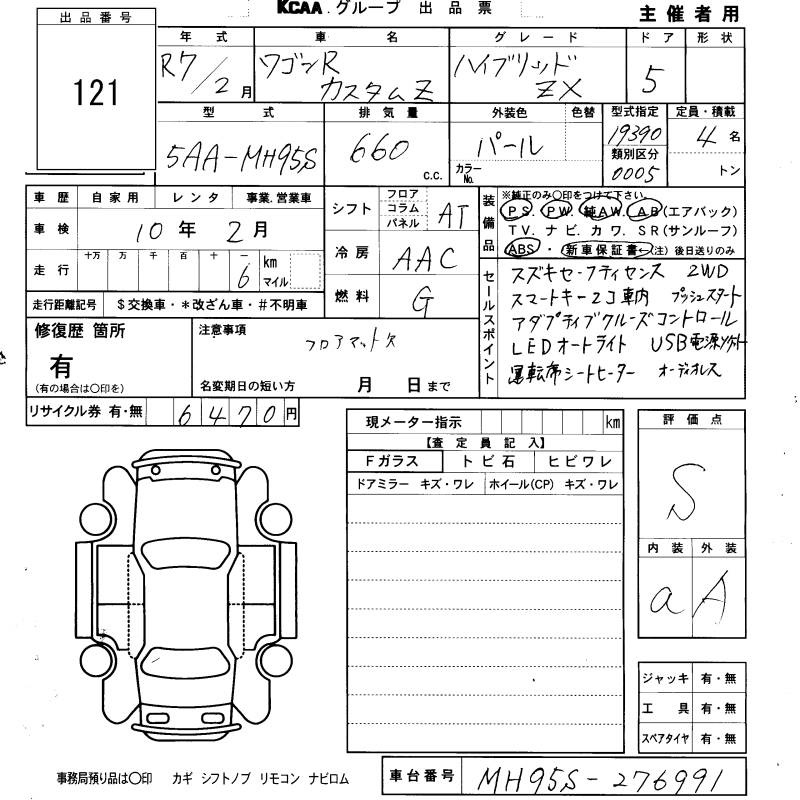 KCAA.グループ 出品票
主催者用
出品番号
121
年式 車名 グレード ドア 形状
R7/2月 ワゴンR カスタムZ ハイブリッド ZX 5
型式 排気量 外装色 色替 型式指定 定員・積載
5AA-MH95S 660 c.c. パール カラーNo. 19390 4名
類別区分
0005 トン
車歴 自家用 レンタ 事業.営業車
車検 10年 2月
走行 十万 万 千 百 十 一 km マイル
6
走行距離記号 $交換車・*改ざん車・#不明車
シフト フロア コラム パネル AT
冷房 AAC
燃料 G
装備品
※純正のみ○印をつけて下さい。
PS. PW. 純AW. AB(エアバック)
TV. ナビ. カワ. SR(サンルーフ)
ABS・新車保証書←(注)後日送りのみ
セールスポイント
スズキセーフティセンス 2WD
スマートキー2コ車内 プッシュスタート
アダプティブクルーズコントロール
LEDオートライト USB電源ソケット
運転席シートヒーター オーディオレス
修復歴 箇所
有
(有の場合は○印を)
注意事項
フロアマット欠
名変期日の短い方 月 日まで
リサイクル券 有・無 6470円
現メーター指示 km
【査定員記入】
Fガラス トビ石 ヒビワレ
ドアミラー キズ・ワレ ホイール(CP) キズ・ワレ
評価点
S
内装 外装
a A
ジャッキ 有・無
工具 有・無
スペアタイヤ 有・無
事務局預り品は○印 カギ シフトノブ リモコン ナビロム
車台番号 MH95S-276991